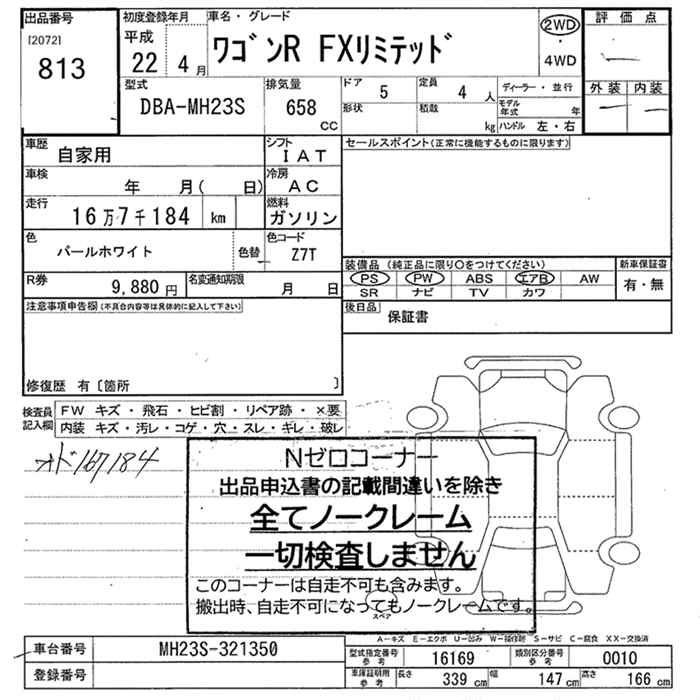 出品番号 初度登録年月 車名・グレード 2WD 評価点
[2072] 平成 ワゴンR FXリミテッド ・
813 22 4月 4WD
型式 排気量 ドア 定員 ディーラー・並行 外装 内装
DBA-MH23S 658 5 4人 モデル年式 年
CC 形状 積載 kg ハンドル 左・右
車歴 自家用 シフト IAT セールスポイント(正常に機能するものに限ります)
車検 年 月( 日) 冷房 AC
走行 16万7千184 km 燃料 ガソリン
色 パールホワイト 色替 色コード Z7T 装備品(純正品に限り○をつけてください) 新車保証書
PS PW ABS エアB AW 有・無
R券 9,880円 名変通知期限 月 日 SR ナビ TV カワ
注意事項申告欄(不具合内容等は具体的に記入して下さい) 後日品 保証書
修復歴 有〔箇所 〕
検査員記入欄 FW キズ・飛石・ヒビ割・リペア跡・×要
内装 キズ・汚レ・コゲ・穴・スレ・キレ・破レ
オド167184
Nゼロコーナー
出品申込書の記載間違いを除き
全てノークレーム
一切検査しません
このコーナーは自走不可も含みます。
搬出時、自走不可になってもノークレームです。
スペア
A-キズ E-エクボ U-凹み W-補修跡 S-サビ C-腐食 XX-交換済
車台番号 MH23S-321350 型式指定番号 参考 16169 類別区分番号 参考 0010
登録番号 車庫証明用 参考 長さ 339 cm 幅 147 cm 高さ 166 cm